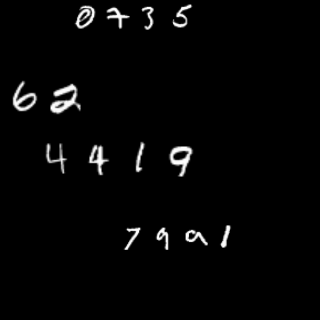 0735
62
4419
7991